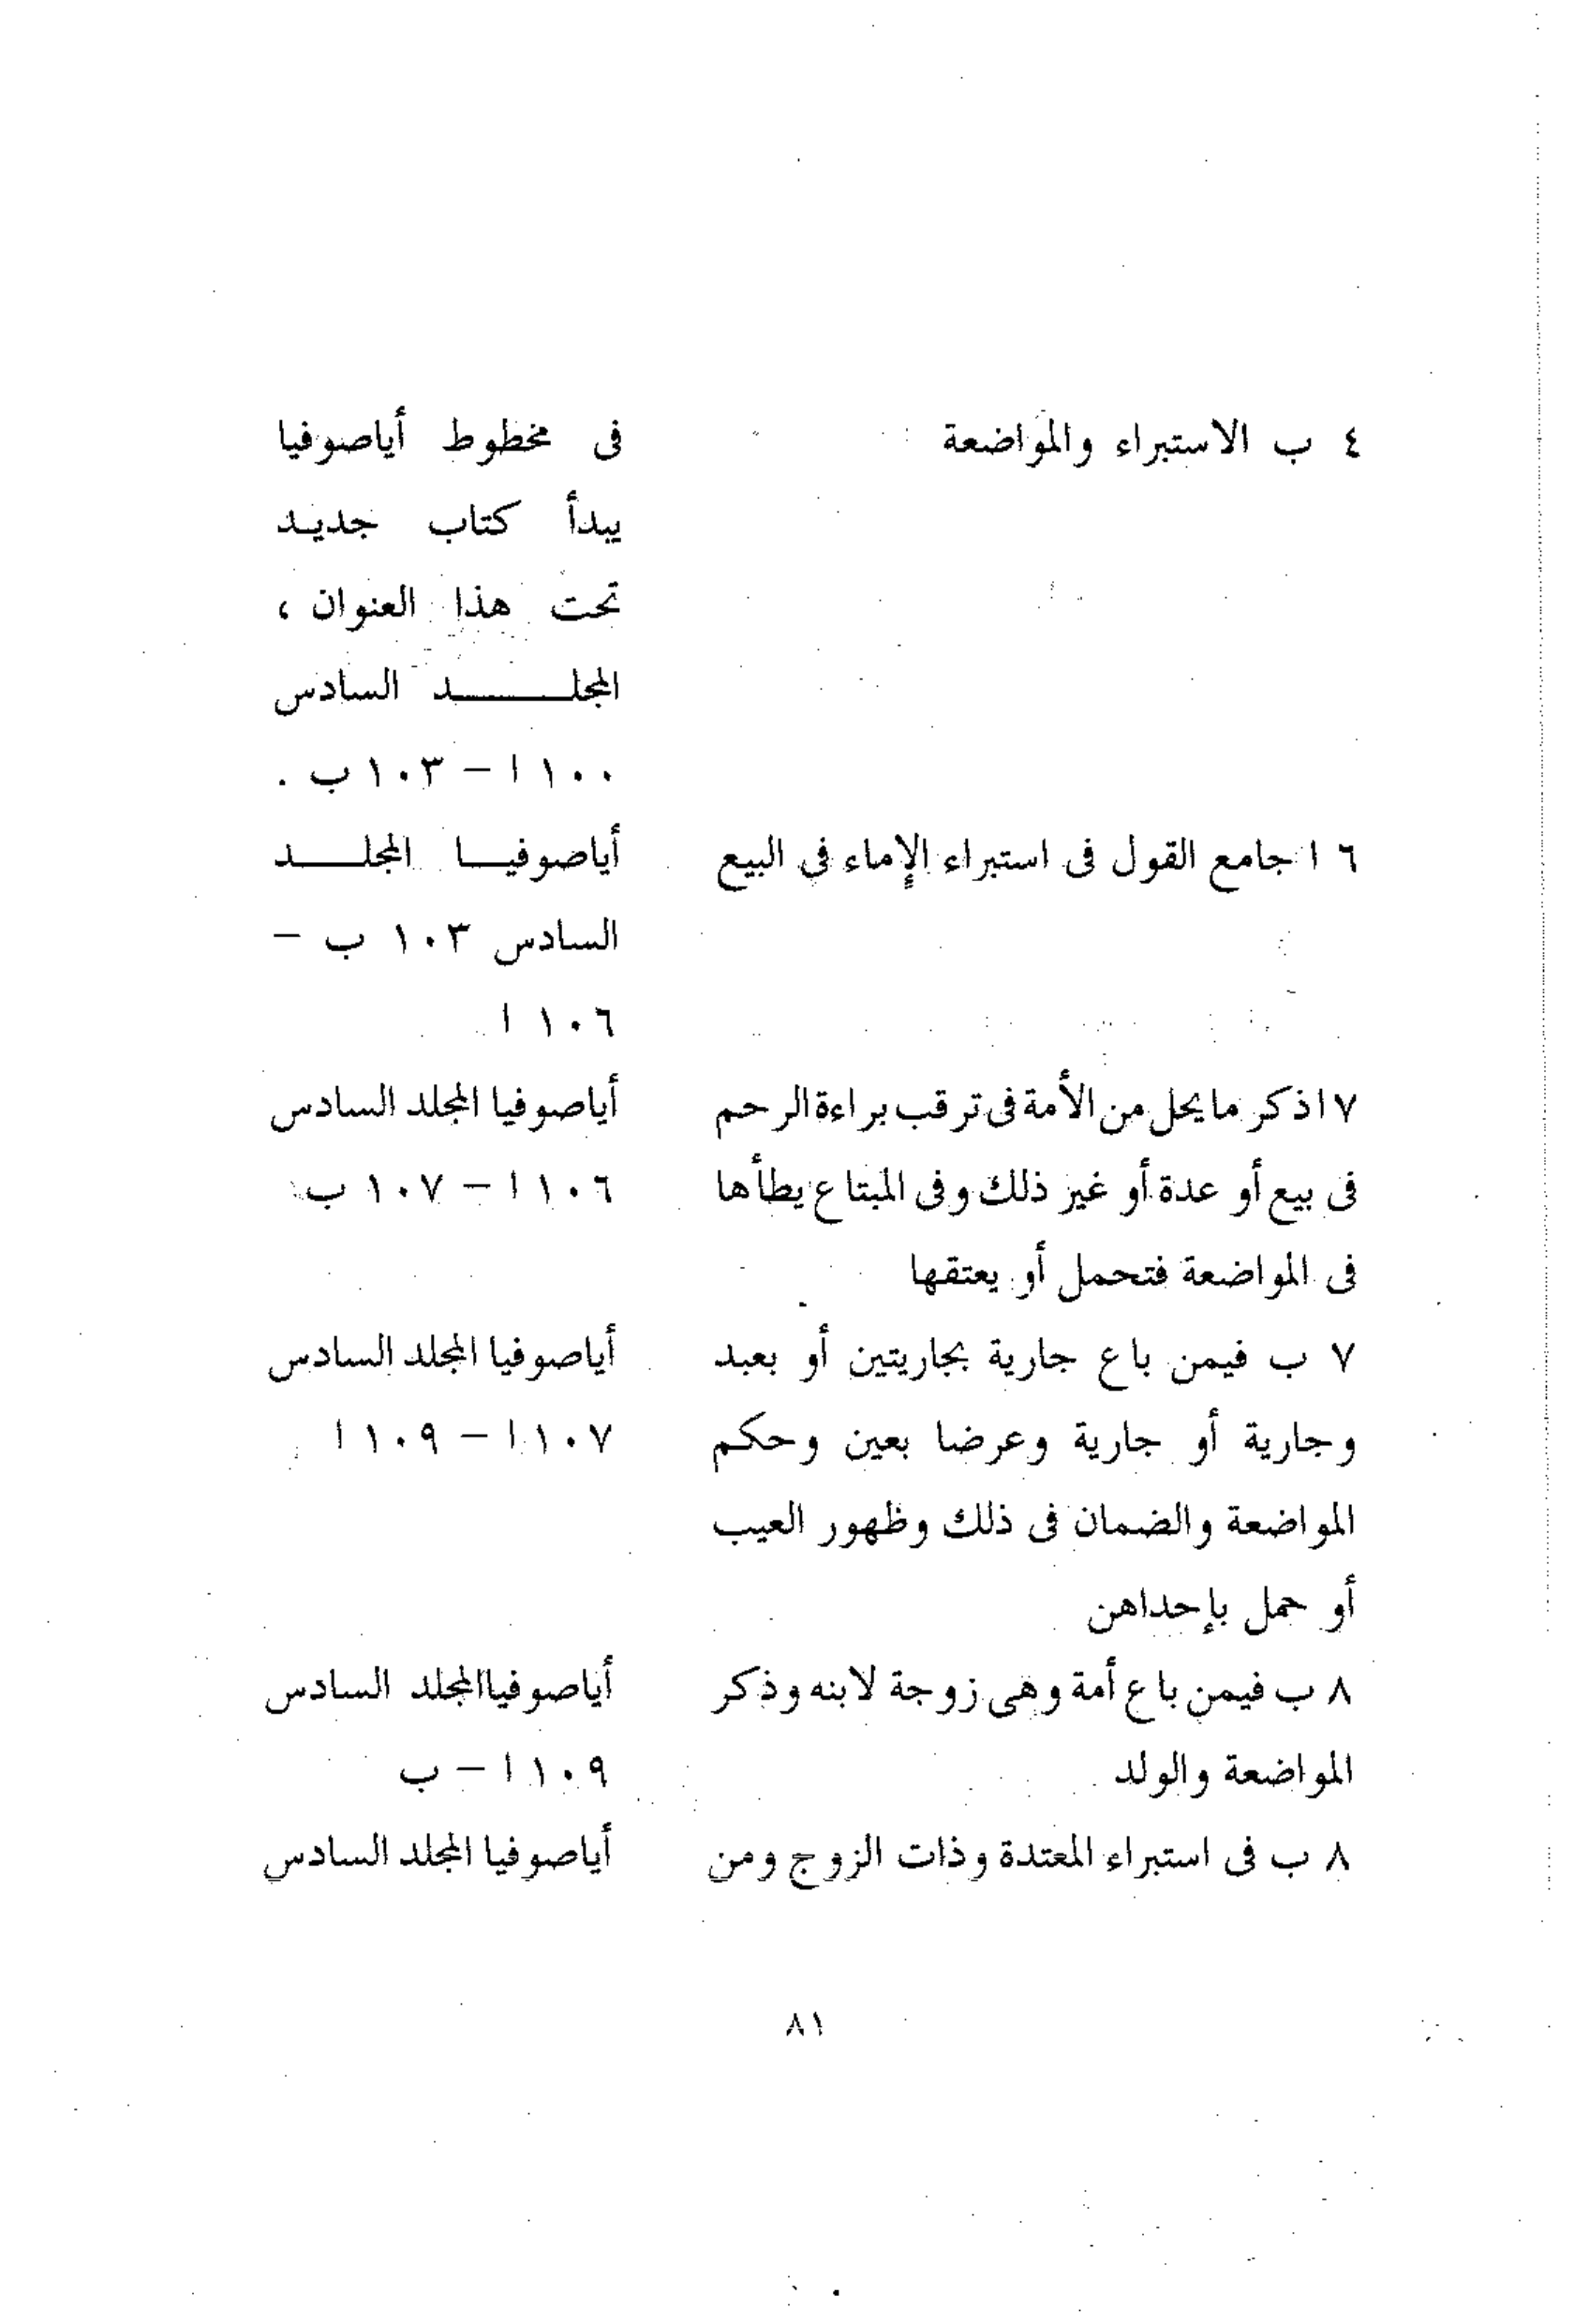 ٤ ب الاستبراء والمواضعة
فى مخطوط أياصوفيا
يبدأ كتاب جديد
تحت هذا العنوان ،
المجلد السادس
١٠٠ ا – ١٠٣ ب .
٦ ا جامع القول فى استبراء الإماء في البيع
أياصوفيا المجلد
السادس ١٠٣ ب –
١٠٦ ا
٧ ا ذكر ما يحل من الأمة فى ترقب براءة الرحم
فى بيع أو عدة أو غير ذلك وفى المبتاع يطأها
فى المواضعة فتحمل أو يعتقها
أياصوفيا المجلد السادس
١٠٦ ا – ١٠٧ ب
٧ ب فيمن باع جارية بجاريتين أو بعبد
وجارية أو جارية وعرضا بعين وحكم
المواضعة والضمان فى ذلك وظهور العيب
أو حمل بإحداهن
أياصوفيا المجلد السادس
١٠٧ ا – ١٠٩ ا
٨ ب فيمن باع أمة وهى زوجة لابنه وذكر
المواضعة والولد
أياصوفيا المجلد السادس
١٠٩ ا – ب
٨ ب فى استبراء المعتدة وذات الزوج ومن
أياصوفيا المجلد السادس
٨١